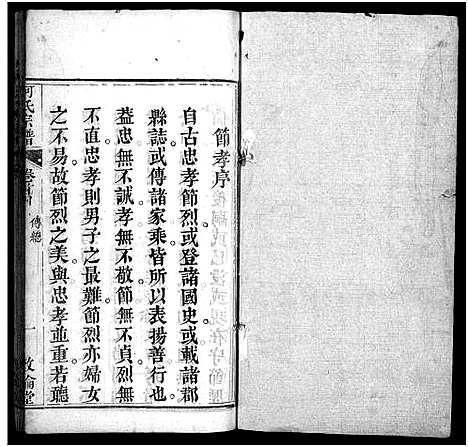 節孝序
自古忠孝節烈或登諸國史或載諸郡
縣誌或傳諸家乘皆所以表揚善行也
益忠無不誠孝無不敬節無不貞烈無
不直忠孝則男子之最難節烈亦婦女
之不易故節烈之美與忠孝並重若聽
何氏宗譜
傳總
一
敦倫堂